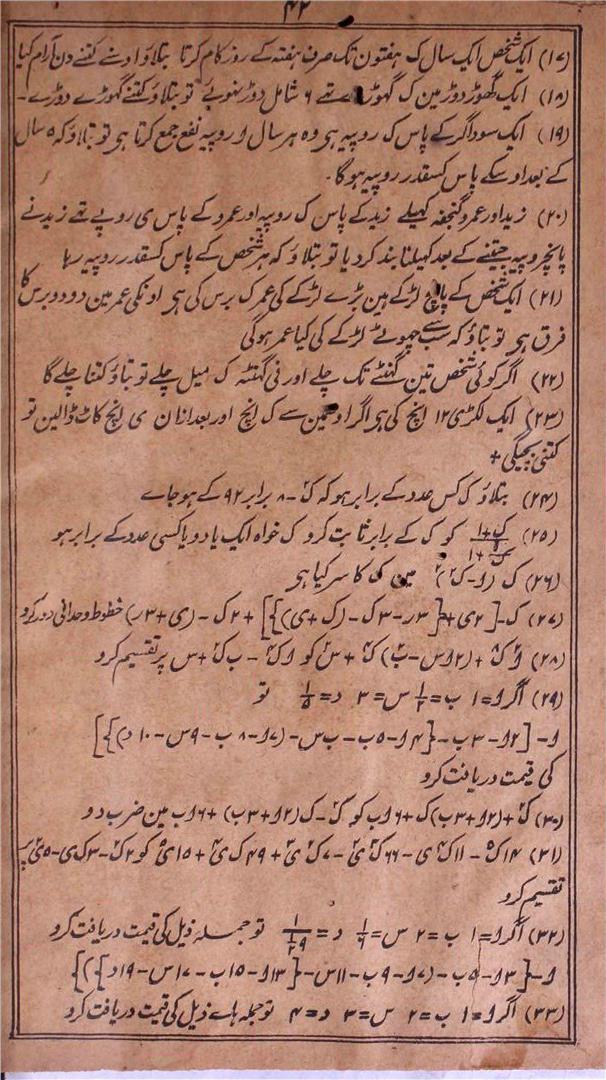 ۴۲
(۱۷) ایک شخص ایک سال ک ہفتون تک صرف ہفتہ کے روز کام کرتا بتلاؤ اوسنے کتنے دن آرام کیا
(۱۸) ایک گھوڑ دوڑ مین ک گھوڑے تھے ۶ شامل دوڑ نہوئے تو بتلاؤ کتنے گھوڑے دوڑے ۔
(۱۹) ایک سوداگر کے پاس ک روپیہ ہی وہ ہر سال ا روپیہ نفع جمع کرتا ہی تو بتلاؤ کہ ۵ سال
کے بعد اوسکے پاس کسقدر روپیہ ہوگا ۔
(۲۰) زید اور عمرو گنجفہ کھیلے زید کے پاس ک روپیہ اور عمرو کے پاس ی روپے تھے زید نے
پانچ روپیہ جیتنے کے بعد کھیلنا بند کر دیا تو بتلاؤ کہ ہر شخص کے پاس کسقدر روپیہ رہا
(۲۱) ایک شخص کے پانچ لڑکے ہین بڑے لڑکے کی عمر ک برس کی ہی اونکی عمر مین دو دو برس کا
فرق ہی تو بتاؤ کہ سب سے چھوٹے لڑکے کی کیا عمر ہوگی
(۲۲) اگر کوئی شخص تین گھنٹے تک چلے اور فی گھنٹہ ک میل چلے تو بتاؤ کتنا چلے گا
(۲۳) ایک لکڑی ۱۲ انچ کی ہی اگر اوسمین سے ک انچ اور بعد ازان ی انچ کاٹ ڈالین تو
کتنی بچیگی +
(۲۴) بتلاؤ ک کس عدد کے برابر ہو کہ ک - ۸ برابر ۹۲ کے ہو جاے
(۲۵) کو ک کے برابر ثابت کرو ک خواہ ایک یا دو یا کسی عدد کے برابر ہو
(۲۶) ک (۱-ک) مین ک کا سر کیا ہی
(۲۷) ک-[۲ی+{۳ر-۳ک-(ک+ی)}]+۲ک-(ی+۳ر) خطوط وحدانی دور کرو
(۲۸) پر تقسیم کرو
(۲۹) اگر ا=۱ ب=½ س=۳ د=⅕ تو
ا-[۲ا-۳ب-{۴ا-۵ب-ب س-(۷ا-۸ب-۹س-۱۰د)}]
کی قیمت دریافت کرو
(۳۰) مین ضرب دو
(۳۱)
تقسیم کرو
(۳۲) اگر ا=۱ ب=۲ تو جملہ ذیل کی قیمت دریافت کرو
(۳۳) اگر ا=۱ ب=۲ س=۳ د=۴ تو جملہ ہاے ذیل کی قیمت دریافت کرو